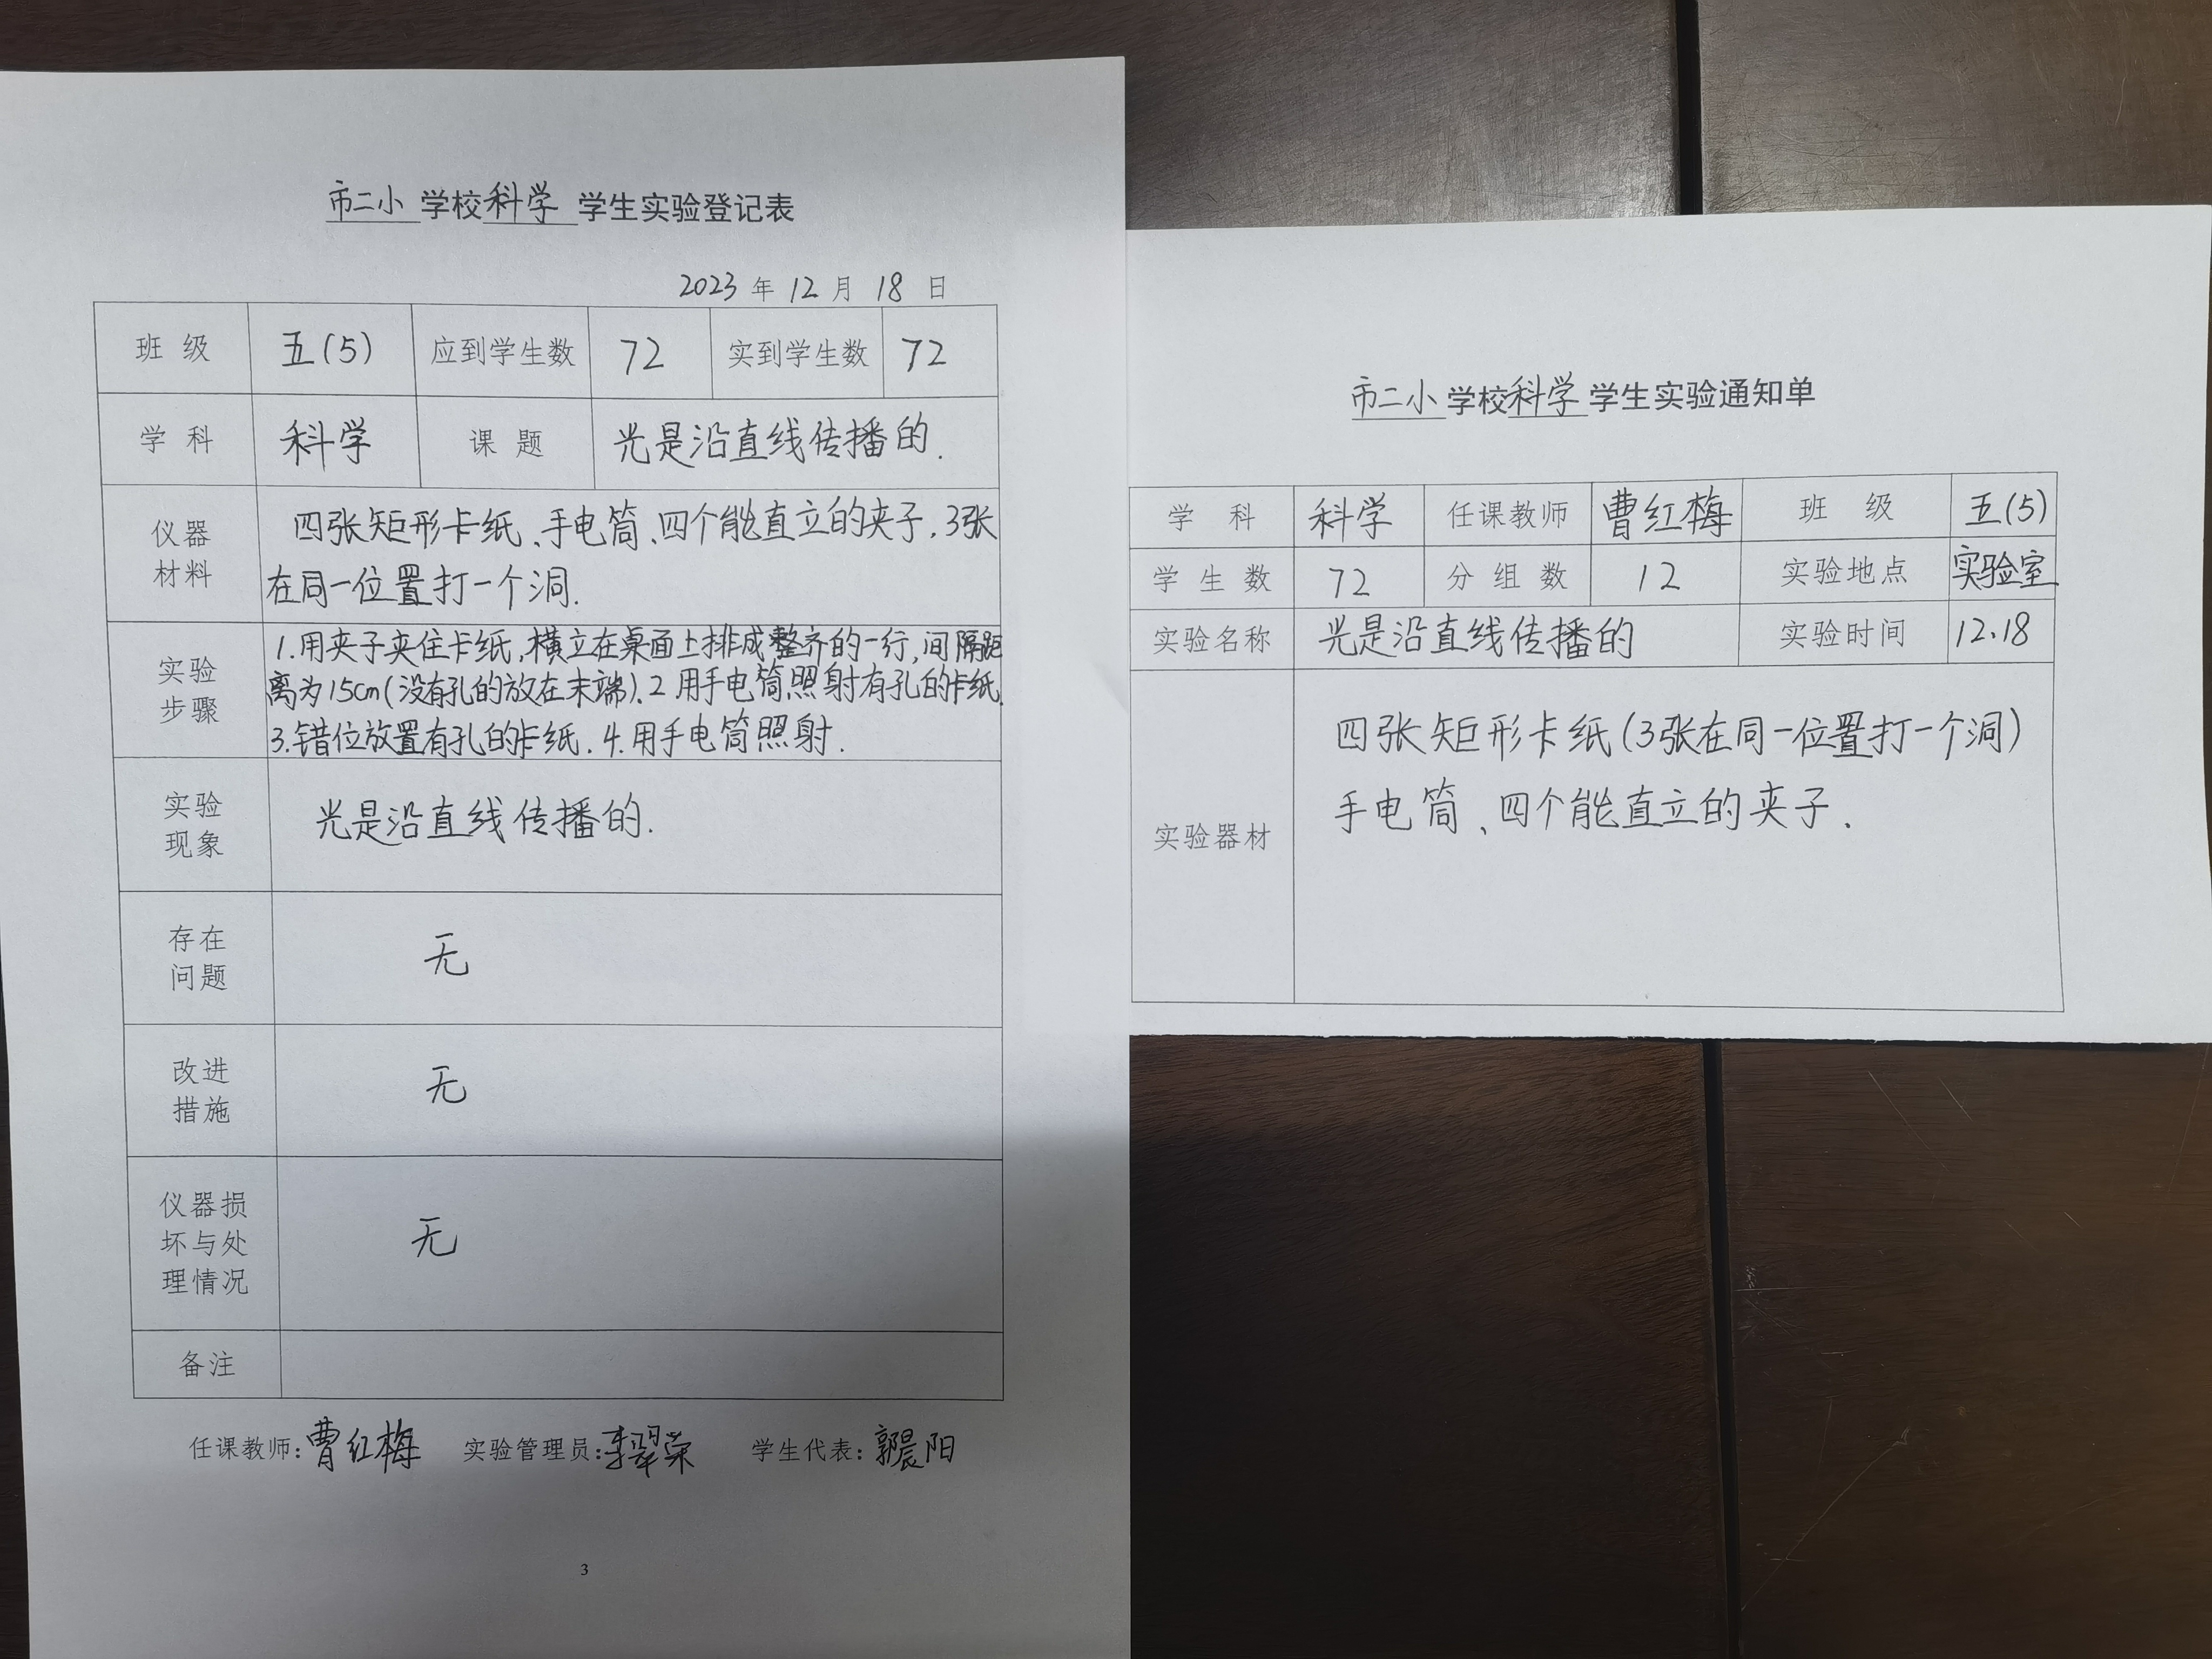 市二小 学校 科学 学生实验登记表
2023 年 12 月 18 日
班 级 五(5) 应到学生数 72 实到学生数 72
学 科 科学 课 题 光是沿直线传播的.
仪器
材料
四张矩形卡纸、手电筒、四个能直立的夹子.3张
在同一位置打一个洞.
实验
步骤
1.用夹子夹住卡纸,横立在桌面上排成整齐的一行,间隔距
离为15cm(没有孔的放在末端).2 用手电筒照射有孔的卡纸.
3.错位放置有孔的卡纸.4.用手电筒照射.
实验
现象
光是沿直线传播的.
存在
问题
无
改进
措施
无
仪器损
坏与处
理情况
无
备注
任课教师:曹红梅 实验管理员:李翠荣 学生代表:郭晨阳
3
市二小 学校 科学 学生实验通知单
学 科 科学 任课教师 曹红梅 班 级 五(5)
学 生 数 72 分 组 数 12 实验地点 实验室
实验名称 光是沿直线传播的 实验时间 12.18
实验器材
四张矩形卡纸(3张在同一位置打一个洞)
手电筒、四个能直立的夹子.